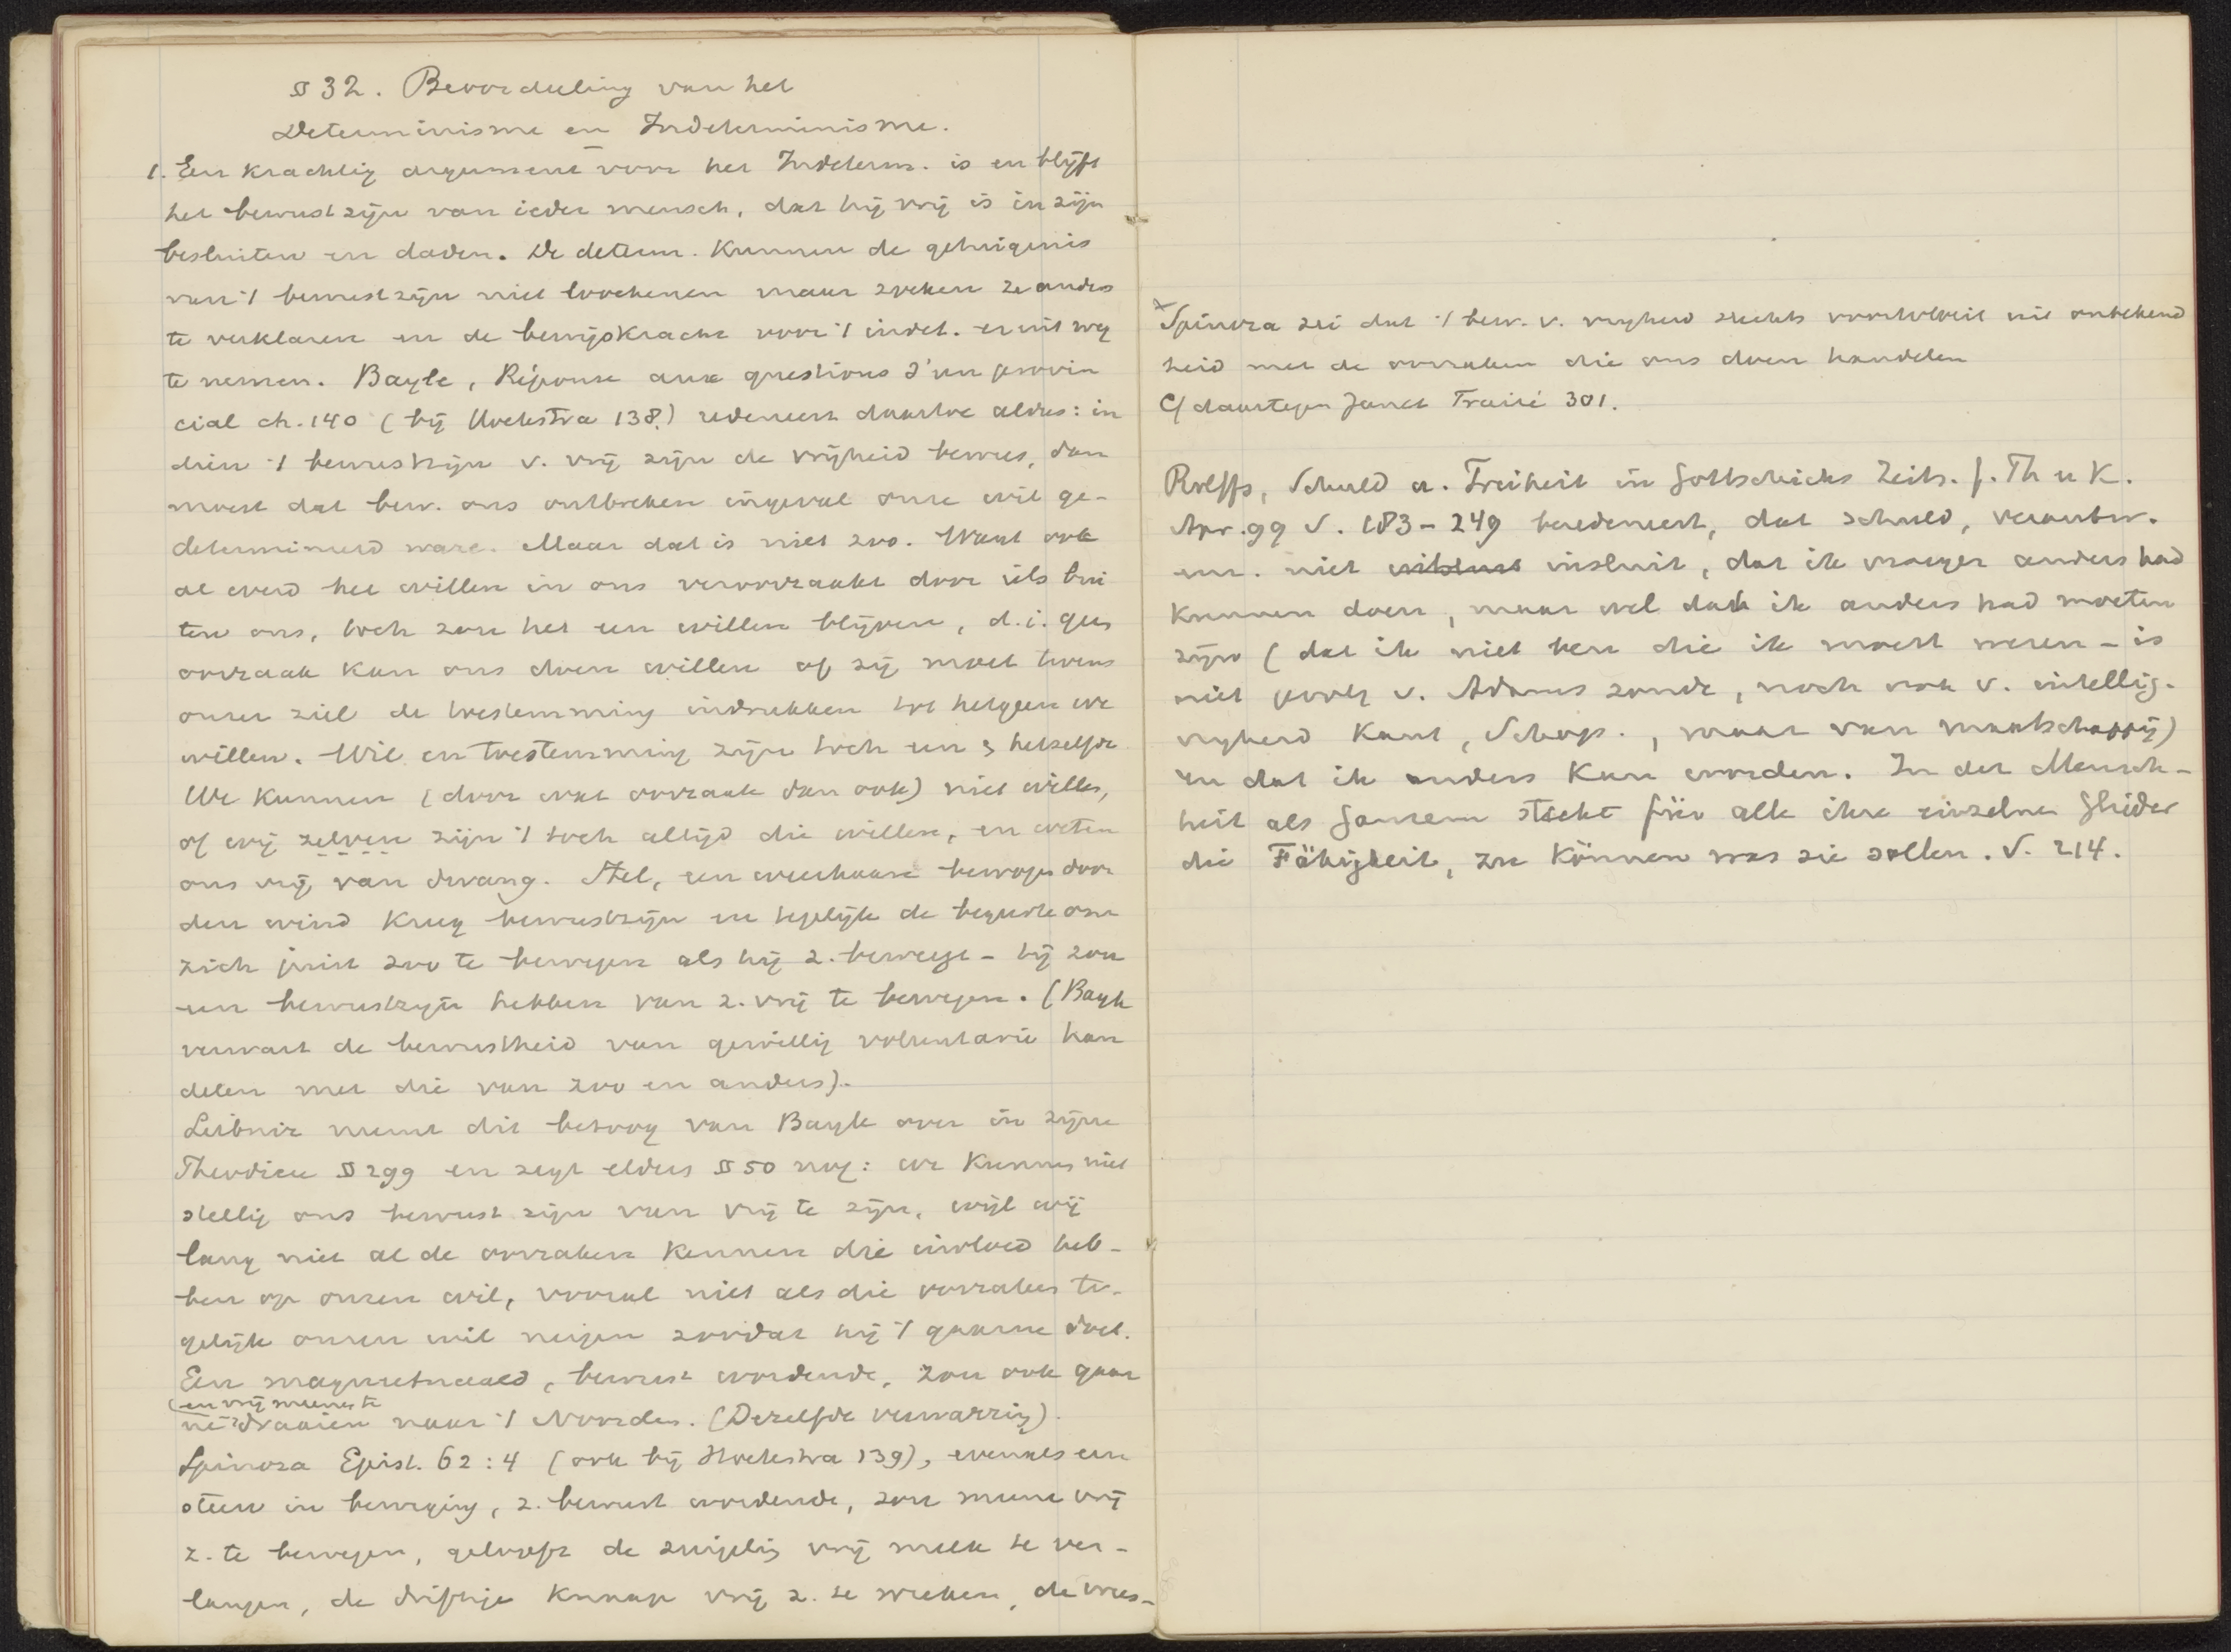 § 32. Beoordeeling van het
Determinisme en Indeterminisme.
1. Een krachtig argument voor het Indeterm. is en blijft
het bewustzijn van ieder mensch, dat hij vrij is in zijn
besluiten en daden. De determ. kunnen de getuigenis
van 't bewustzijn niet loochenen maar zoeken ze anders
te verklaren en de bewijskracht voor 't indet. eruit weg
te nemen. Bayle, Réponse aux questions d'un provin
cial ch. 140 (bij Hoekstra 138) redeneert daartoe aldus: in
dien 't bewustzijn v. vrij zijn de vrijheid bewees, dan
moest dat bew. ons ontbreken ingeval onze wil ge-
determineerd ware. Maar dat is niet zoo. Want ook
al werd het willen in ons veroorzaakt door iets bui
ten ons, toch zou het een willen blijven, d.i. geen
oorzaak kan ons doen willen of zij moet tevens
onzer ziel de toestemming indrukken tot hetgeen we
willen. Wil en toestemming zijn toch een & hetzelfde
We kunnen (door wat oorzaak dan ook) niet willen,
of wij zelven zijn 't toch altijd die willen, en weten
ons vrij van dwang. Stel, een weerhaan bewogen door
den wind kreeg bewustzijn en tegelijk de begeerte om
zich juist zoo te bewegen als hij z. beweegt – hij zou
een bewustzijn hebben van z. vrij te bewegen. (Bayle
verwart de bewustheid van gewillig voluntarie han
delen met die van zoo en anders).
Leibniz neemt dit betoog van Bayle over in zijne
Theodicee § 299 en zegt elders § 50 nog: we kunnen niet
stellig ons bewust zijn van vrij te zijn, wijl wij
lang niet al de oorzaken kennen die invloed heb-
ben op onzen wil, vooral niet als die oorzaken te-
gelijk onzen wil neigen zoodat hij 't gaarne doet.
Een magneetnaald, bewust wordende, zou ook gaar
(en vrij meenen te
ne draaien naar 't Noorden. (Dezelfde verwarring).
Spinoza Epist. 62 : 4 (ook bij Hoekstra 139), evenals een
steen in beweging, z. bewust wordende, zou meene vrij
z. te bewegen, gelooft de zuigeling vrij melk te ver-
langen, de driftige knaap vrij z. te wreken, de vrees-
x Spinoza zei dat 't bew. v. vrijheid slechts voortvloeit uit onbekend
heid met de oorzaken die ons doen handelen
Cf daartegen Janet Traité 301.
Rolffs, Schuld u. Freiheit in Gottschicks Zeits. f. Th u K.
Apr. 99 S. 183 – 249 beredeneert, dat schuld, verantw.
enz. niet insluit, dat ik vroeger anders had
kunnen doen, maar wel dat ik anders had moeten
zijn (dat ik niet ben die ik moest wezen – is
niet gevolg v. Adams zonde, noch ook v. intellig.
vrijheid Kant, Schop., maar van maatschappij)
en dat ik anders kan worden. In der Mensch-
heit als Ganzem steckt für alle ihre einzelnen Glieder
die Fähigkeit, zu können was sie sollen. S. 214.